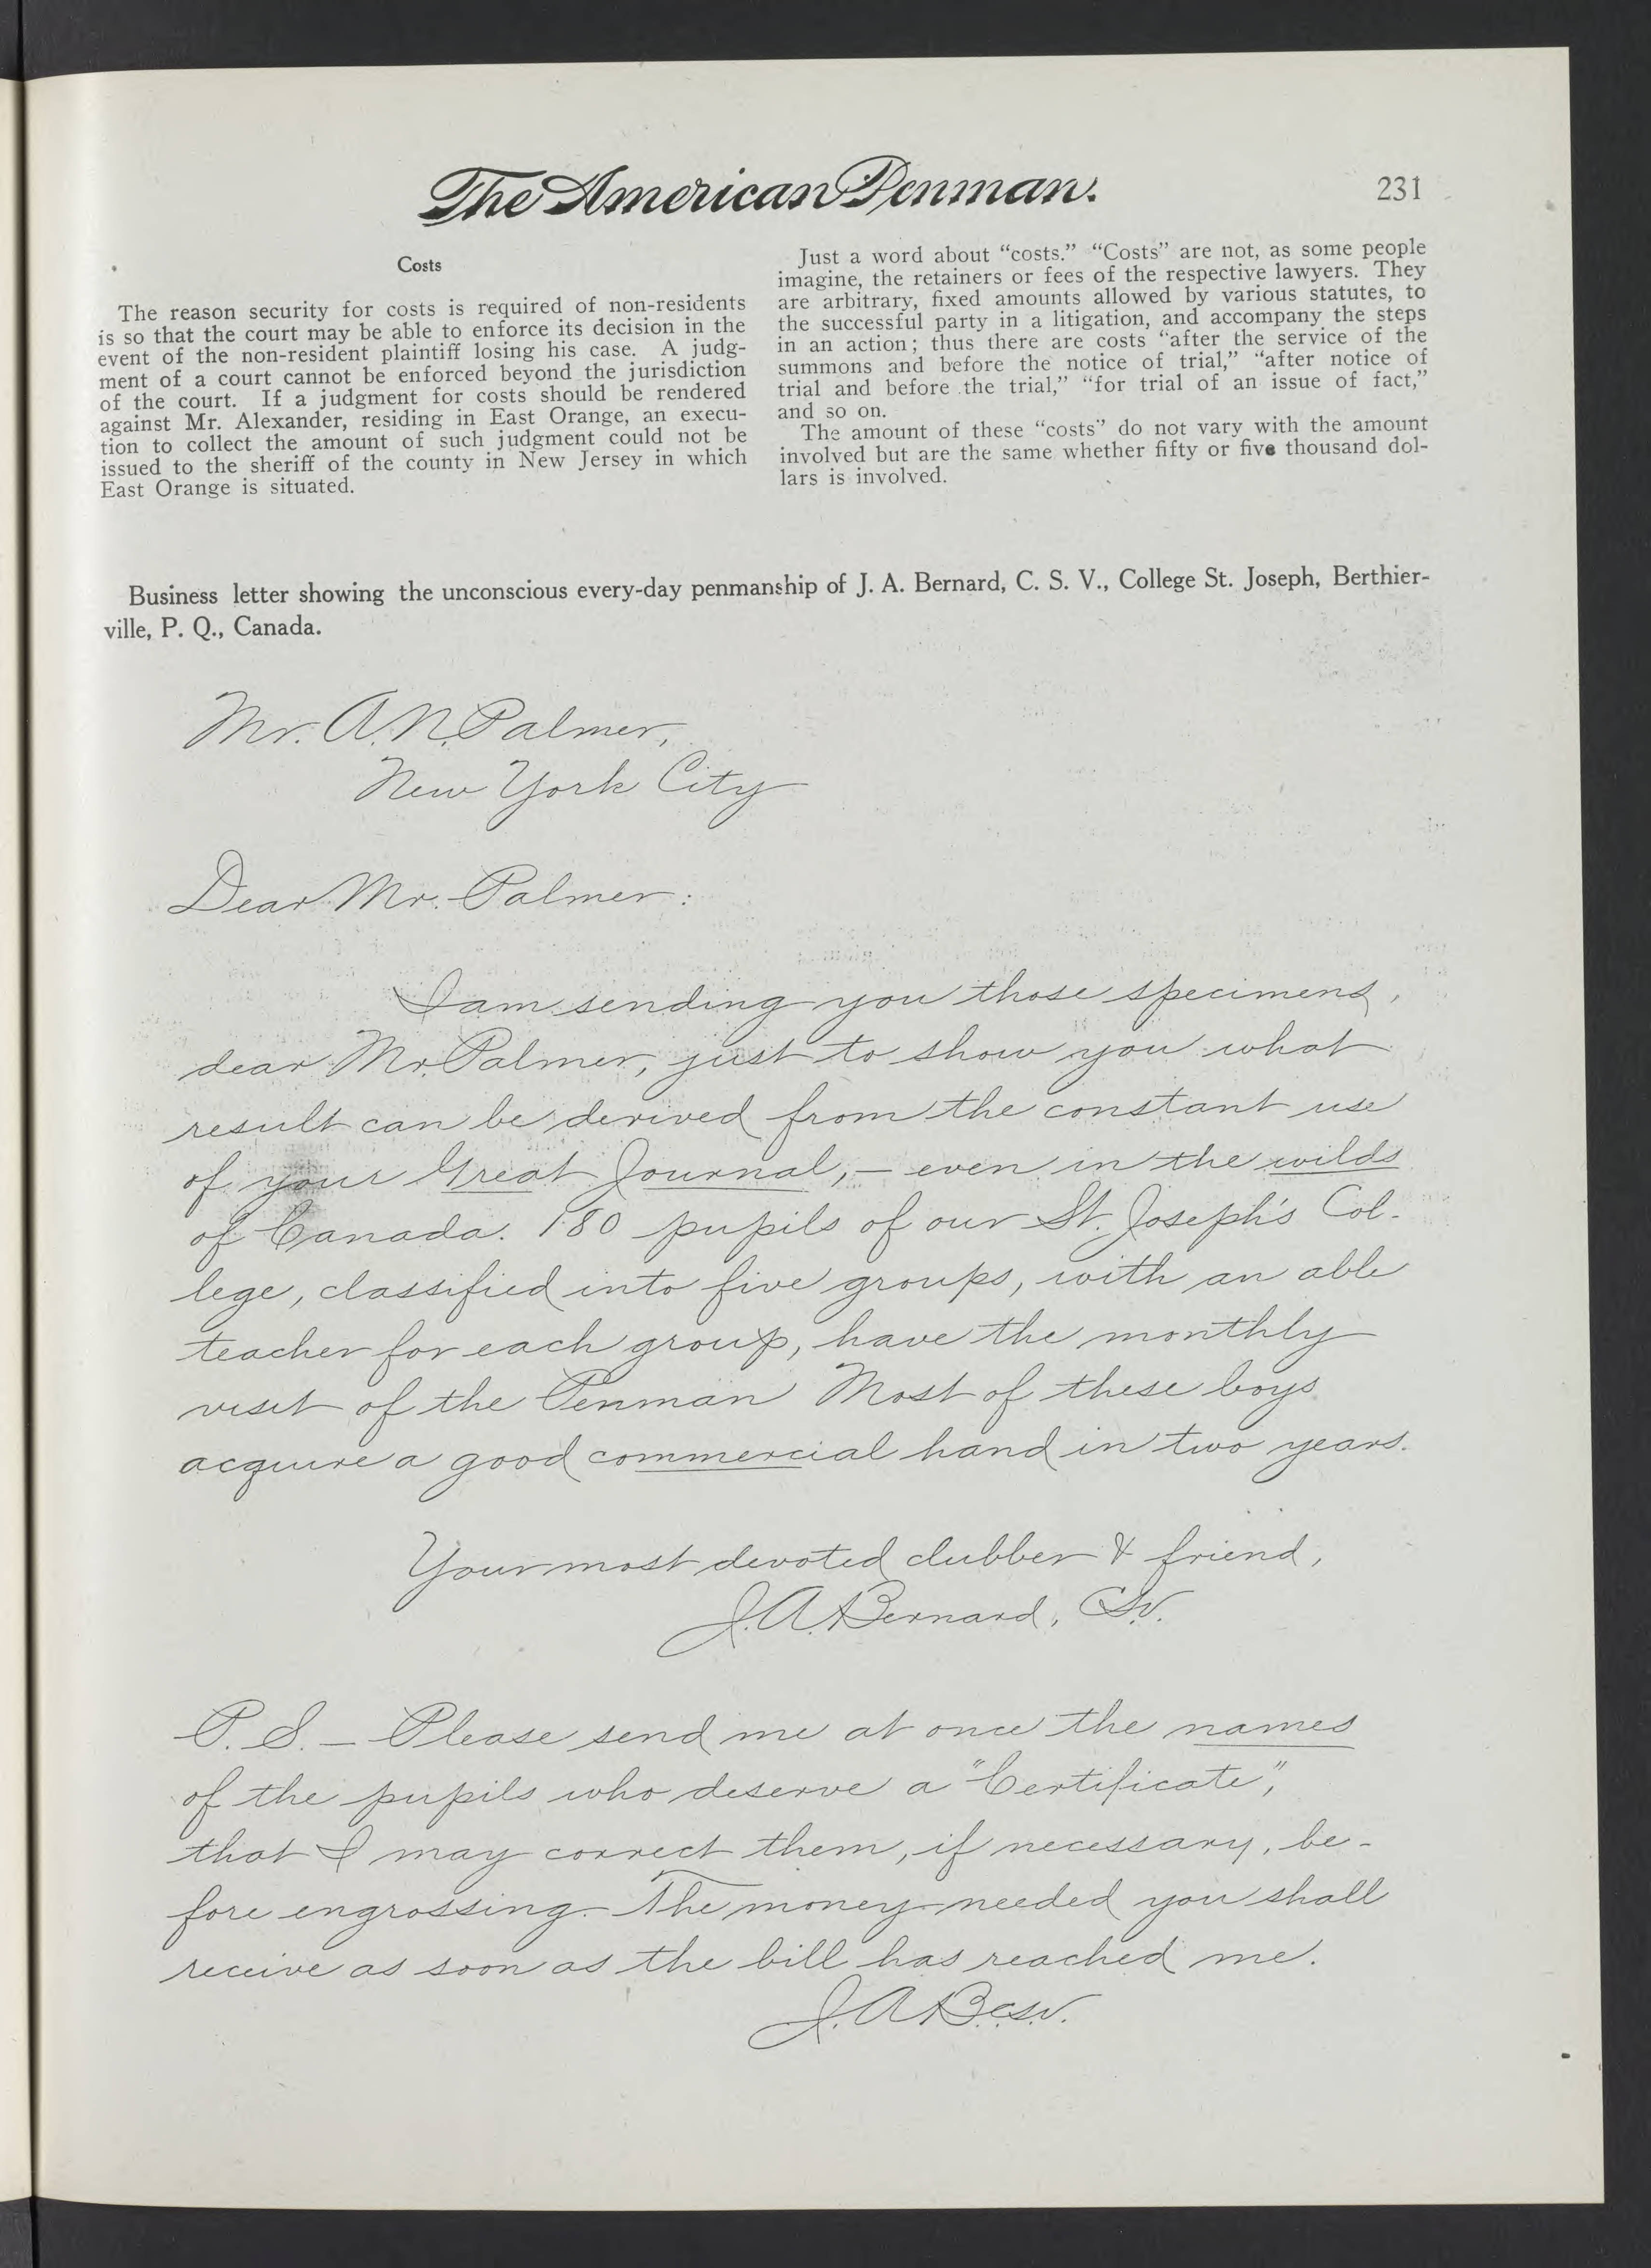 The American Penman.
231
Costs
The reason security for costs is required of non-residents
is so that the court may be able to enforce its decision in the
event of the non-resident plaintiff losing his case. A judg-
ment of a court cannot be enforced beyond the jurisdiction
of the court. If a judgment for costs should be rendered
against Mr. Alexander, residing in East Orange, an execu-
tion to collect the amount of such judgment could not be
issued to the sheriff of the county in New Jersey in which
East Orange is situated.
Just a word about “costs.” “Costs” are not, as some people
imagine, the retainers or fees of the respective lawyers. They
are arbitrary, fixed amounts allowed by various statutes, to
the successful party in a litigation, and accompany the steps
in an action; thus there are costs “after the service of the
summons and before the notice of trial,” “after notice of
trial and before the trial,” “for trial of an issue of fact,”
and so on.
The amount of these “costs” do not vary with the amount
involved but are the same whether fifty or five thousand dol-
lars is involved.
Business letter showing the unconscious every-day penmanship of J. A. Bernard, C. S. V., College St. Joseph, Berthier-
ville, P. Q., Canada.
Mr. A. N. Palmer,
New York City
Dear Mr. Palmer:
I am sending you those specimens,
dear Mr. Palmer, just to show you what
result can be derived from the constant use
of your Great Journal, — even in the wilds
of Canada. 180 pupils of our St. Joseph's Col-
lege, classified into five groups, with an able
teacher for each group, have the monthly
visit of the Penman Most of these boys
acquire a good commercial hand in two years.
Your most devoted clubber & friend,
J. A. Bernard, C.S.V.
P. S. — Please send me at once the names
of the pupils who deserve a "Certificate",
that I may correct them, if necessary, be-
fore engrossing. The money needed you shall
receive as soon as the bill has reached me.
J. A. B. c.s.v.